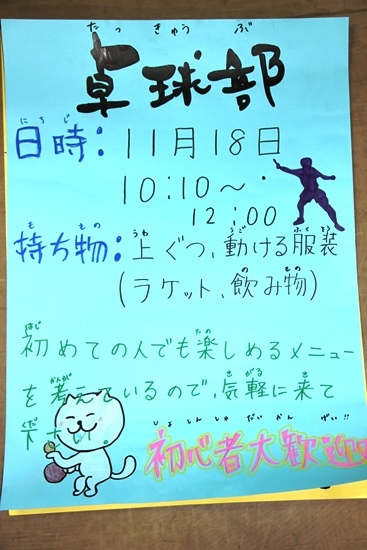 たっきゅうぶ
卓球部
にちじ
日時：11月18日
10:10〜
12:00
ももの
うわ うご ふくそう
持ち物：上ぐつ、動ける服装
の もの
(ラケット、飲み物)
はじ たの
初めての人でも楽しめるメニュー
かんが きがる き
を考えているので、気軽に来て
くだ
下さい。
しょしんしゃだいかんげい!!
初心者大歓迎